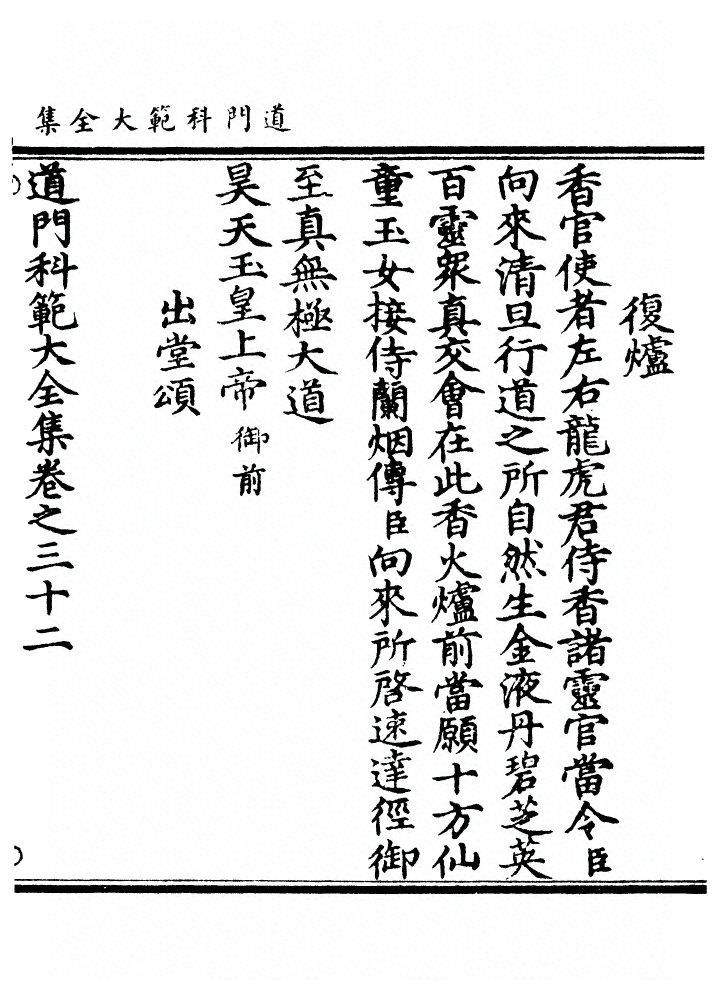 道門科範大全集
復爐
香官使者左右龍虎君侍香諸靈官當令臣
向來清旦行道之所自然生金液丹碧芝英
百靈眾真交會在此香火爐前當願十方仙
童玉女接侍蘭烟傳臣向來所啓速達徑御
至真無極大道
昊天玉皇上帝御前
出堂頌
道門科範大全集卷之三十二